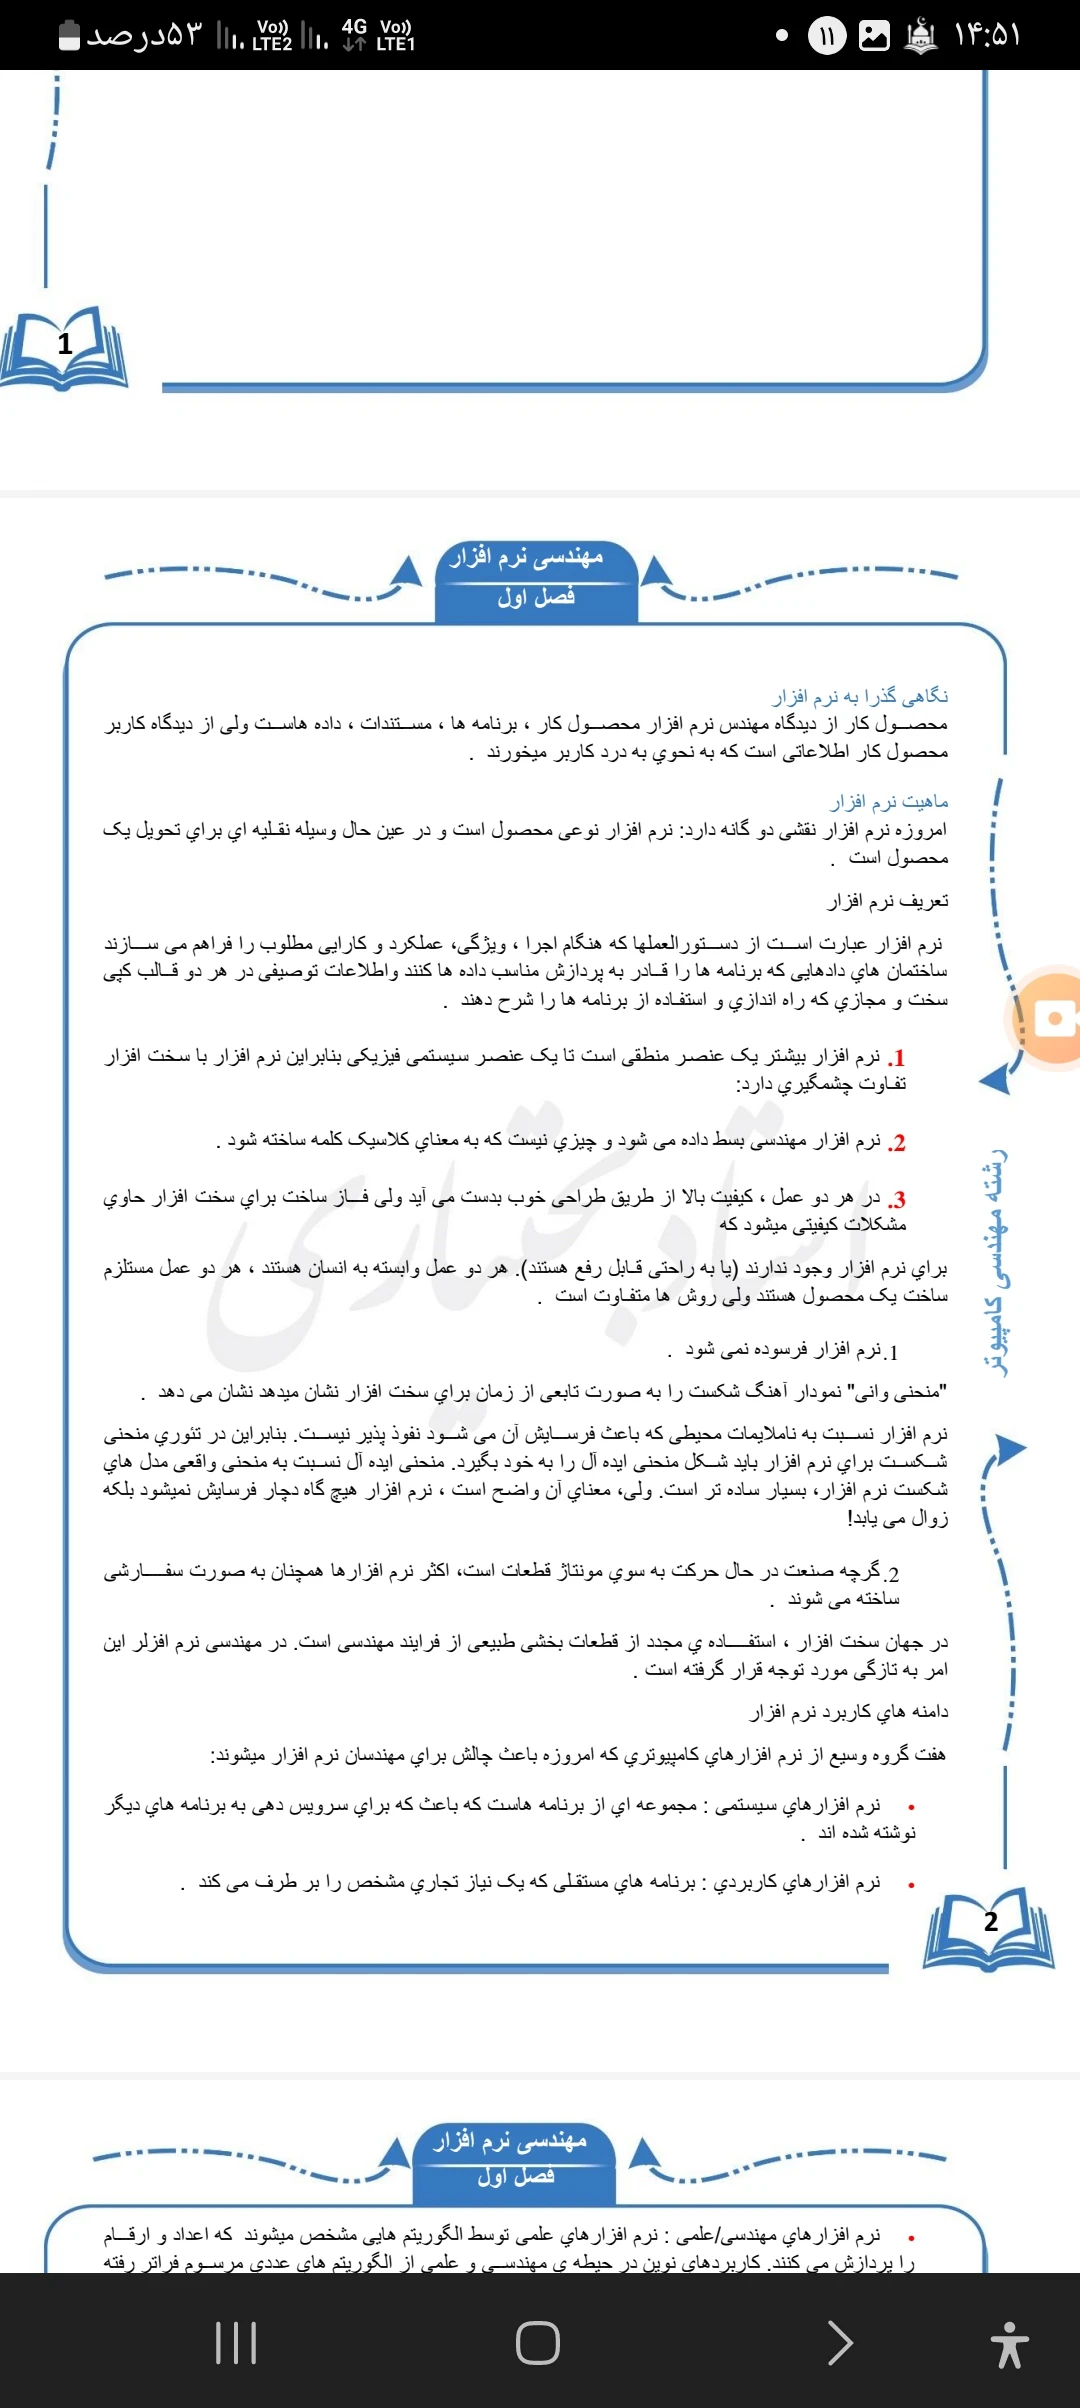 ۵۳درصد Vo)) LTE2 4G Vo)) LTE1 ۱۱ ۱۴:۵۱
1
مهندسی نرم افزار
فصل اول
نگاهی گذرا به نرم افزار
محصول کار از دیدگاه مهندس نرم افزار محصول کار ، برنامه ها ، مستندات ، داده هاست ولی از دیدگاه کاربر
محصول کار اطلاعاتی است که به نحوي به درد کاربر میخورند .
ماهیت نرم افزار
امروزه نرم افزار نقشی دو گانه دارد: نرم افزار نوعی محصول است و در عین حال وسیله نقلیه اي براي تحویل یک
محصول است .
تعریف نرم افزار
نرم افزار عبارت است از دستورالعملها که هنگام اجرا ، ویژگی، عملکرد و کارایی مطلوب را فراهم می سازند
ساختمان هاي دادهایی که برنامه ها را قادر به پردازش مناسب داده ها کنند واطلاعات توصیفی در هر دو قالب کپی
سخت و مجازي که راه اندازي و استفاده از برنامه ها را شرح دهند .
1. نرم افزار بیشتر یک عنصر منطقی است تا یک عنصر سیستمی فیزیکی بنابراین نرم افزار با سخت افزار
تفاوت چشمگیري دارد:
2. نرم افزار مهندسی بسط داده می شود و چیزي نیست که به معناي کلاسیک کلمه ساخته شود .
3. در هر دو عمل ، کیفیت بالا از طریق طراحی خوب بدست می آید ولی فاز ساخت براي سخت افزار حاوي
مشکلات کیفیتی میشود که
براي نرم افزار وجود ندارند (یا به راحتی قابل رفع هستند). هر دو عمل وابسته به انسان هستند ، هر دو عمل مستلزم
ساخت یک محصول هستند ولی روش ها متفاوت است .
1.نرم افزار فرسوده نمی شود .
"منحنی وانی" نمودار آهنگ شکست را به صورت تابعی از زمان براي سخت افزار نشان میدهد نشان می دهد .
نرم افزار نسبت به ناملایمات محیطی که باعث فرسایش آن می شود نفوذ پذیر نیست. بنابراین در تئوري منحنی
شکست براي نرم افزار باید شکل منحنی ایده آل را به خود بگیرد. منحنی ایده آل نسبت به منحنی واقعی مدل هاي
شکست نرم افزار، بسیار ساده تر است. ولی، معناي آن واضح است ، نرم افزار هیچ گاه دچار فرسایش نمیشود بلکه
زوال می یابد!
2.گرچه صنعت در حال حرکت به سوي مونتاژ قطعات است، اکثر نرم افزارها همچنان به صورت سفارشی
ساخته می شوند .
در جهان سخت افزار ، استفاده ي مجدد از قطعات بخشی طبیعی از فرایند مهندسی است. در مهندسی نرم افزلر این
امر به تازگی مورد توجه قرار گرفته است .
دامنه هاي کاربرد نرم افزار
هفت گروه وسیع از نرم افزارهاي کامپیوتري که امروزه باعث چالش براي مهندسان نرم افزار میشوند:
• نرم افزارهاي سیستمی : مجموعه اي از برنامه هاست که باعث که براي سرویس دهی به برنامه هاي دیگر
نوشته شده اند .
• نرم افزارهاي کاربردي : برنامه هاي مستقلی که یک نیاز تجاري مشخص را بر طرف می کند .
رشته مهندسی کامپیوتر
استاد بختیاری
2
مهندسی نرم افزار
فصل اول
• نرم افزارهاي مهندسی/علمی : نرم افزارهاي علمی توسط الگوریتم هایی مشخص میشوند که اعداد و ارقام
را پردازش می کنند. کاربردهاي نوین در حیطه ي مهندسی و علمی از الگوریتم هاي عددي مرسوم فراتر رفته